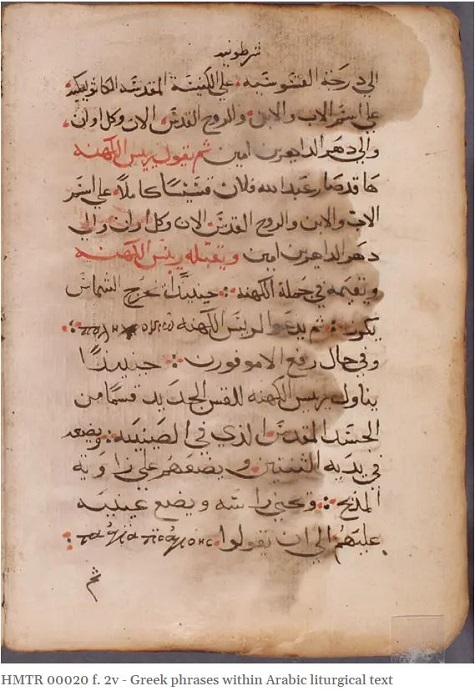 شرطونيه
الي درجة القسوسيه علي الكنيسة المقدسة الكاثوليكيه
علي اسم الاب والابن والروح القدس الان وكل اوان
والي دهر الداهرين امين ثم يقول ريس الكهنه
ها قد صار عبد الله فلان قسيسًا كاملاً علي اسم
الاب والابن والروح القدس الان وكل اوان والي
دهر الداهرين امين ويقبله ريس الكهنه
ويقيمه في جملة الكهنه حينيذًا يخرج الشماس
ثم يدعوا لريس الكهنه
وفي حال رفع الاموفورن حينيذًا
يناول ريس الكهنه للقس الجديد قسمًا من
الجسد المقدس الذي في الصينيه ويضعه
في يديه الثنتين علي زاوية
المذبح ويحني راسه ويضع عينيه
عليهم الي ان يقولوا
ثم
HMTR 00020 f. 2v - Greek phrases within Arabic liturgical text